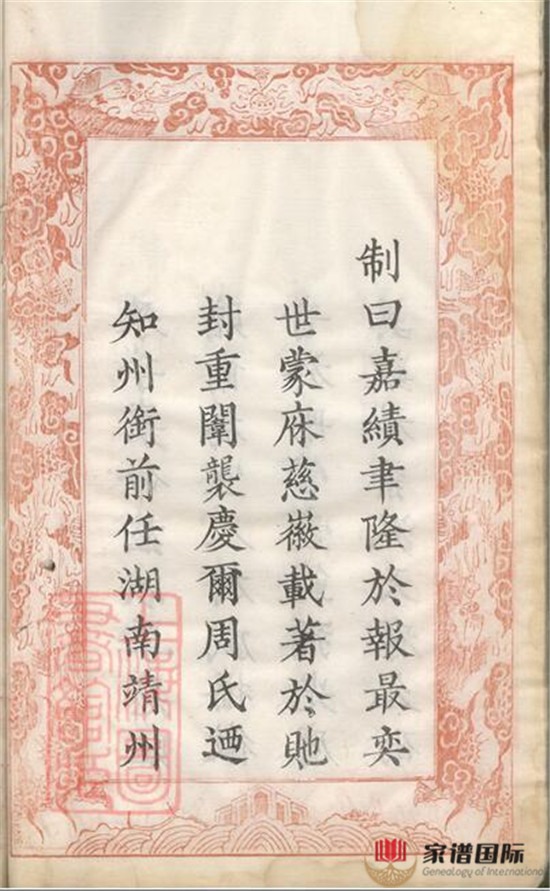 制曰嘉績聿隆於報最奕
世蒙庥慈徽載著於貤
封重闈襲慶爾周氏迺
知州銜前任湖南靖州
上海圖書館藏
家谱国际
Genealogy of Internationa